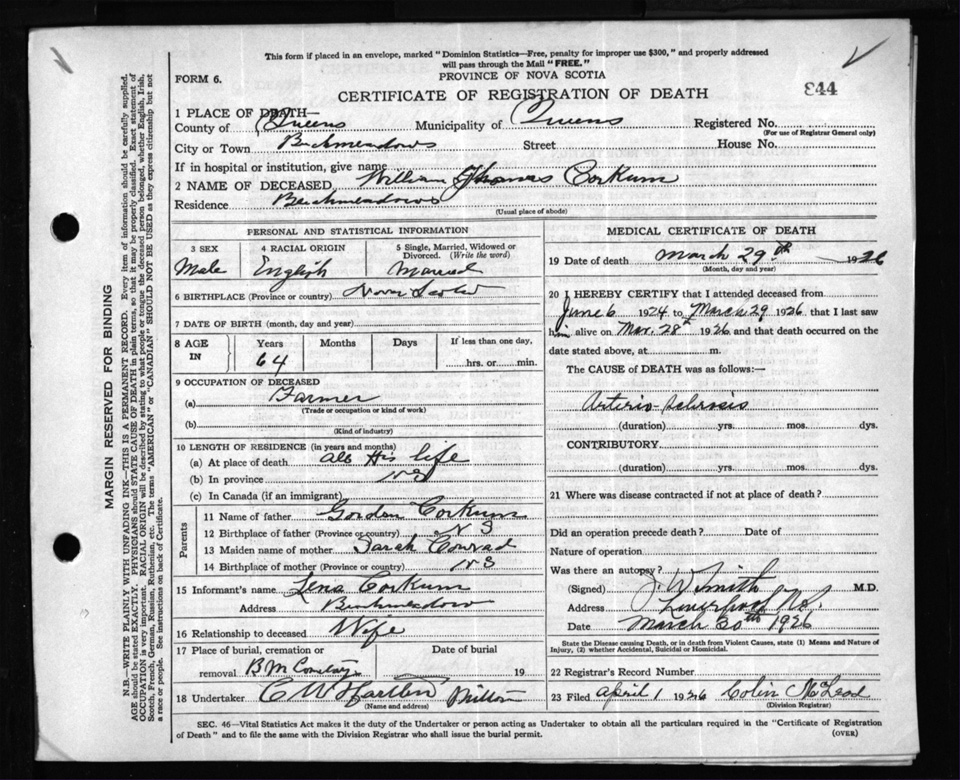 This form if placed in an envelope, marked "Dominion Statistics—Free, penalty for improper use $300," and properly addressed
will pass through the Mail "FREE."
FORM 6. PROVINCE OF NOVA SCOTIA
CERTIFICATE OF REGISTRATION OF DEATH 844
1 PLACE OF DEATH—
County of Queens Municipality of Queens Registered No.
(For use of Registrar General only)
City or Town Beechmeadows Street House No.
If in hospital or institution, give name
2 NAME OF DECEASED William Thomas Corkum
Residence Beechmeadows
(Usual place of abode)
PERSONAL AND STATISTICAL INFORMATION
3 SEX 4 RACIAL ORIGIN 5 Single, Married, Widowed or Divorced. (Write the word)
Male English Married
6 BIRTHPLACE (Province or country) Nova Scotia
7 DATE OF BIRTH (month, day and year)
8 AGE IN Years Months Days If less than one day,
64 hrs. or min.
9 OCCUPATION OF DECEASED
(a) Farmer
(Trade or occupation or kind of work)
(b)
(Kind of industry)
10 LENGTH OF RESIDENCE (in years and months)
(a) At place of death all His life
(b) In province N S
(c) In Canada (if an immigrant)
Parents
11 Name of father Gordon Corkum
12 Birthplace of father (Province or country) N S
13 Maiden name of mother Sarah Conrad
14 Birthplace of mother (Province or country) N S
15 Informant's name Lena Corkum
Address Beechmeadows
16 Relationship to deceased Wife
17 Place of burial, cremation or Date of burial
removal B M Cemetary 19
18 Undertaker C W Harlow Milton
(Name and address)
MEDICAL CERTIFICATE OF DEATH
19 Date of death March 29th 1926
(Month, day and year)
20 I HEREBY CERTIFY that I attended deceased from
June 6 1924 to March 29 1926 that I last saw
him alive on Mar. 28th 1926 and that death occurred on the
date stated above, at m.
The CAUSE of DEATH was as follows:—
Arterio-Sclerosis
(duration) yrs. mos. dys.
CONTRIBUTORY
(duration) yrs. mos. dys.
21 Where was disease contracted if not at place of death?
Did an operation precede death? Date of
Nature of operation
Was there an autopsy?
(Signed) J W Smith M.D.
Address Liverpool N.S.
Date March 30th 1926
State the Disease causing Death, or in death from Violent Causes, state (1) Means and Nature of
Injury, (2) whether Accidental, Suicidal or Homicidal.
22 Registrar's Record Number
23 Filed April 1 1926 Colin McLeod
(Division Registrar)
SEC. 46—Vital Statistics Act makes it the duty of the Undertaker or person acting as Undertaker to obtain all the particulars required in the "Certificate of Registration
of Death" and to file the same with the Division Registrar who shall issue the burial permit. (OVER)
MARGIN RESERVED FOR BINDING
N.B.—WRITE PLAINLY WITH UNFADING INK—THIS IS A PERMANENT RECORD. Every item of information should be carefully supplied.
AGE should be stated EXACTLY. PHYSICIANS should STATE CAUSE OF DEATH in plain terms, so that it may be properly classified. Exact statement of
OCCUPATION is very important. RACIAL ORIGIN will be described by stating to what people or tongue the deceased person belonged, whether English, Irish,
Scotch, French, German, Russian, Ruthenian, etc. The terms "AMERICAN" or "CANADIAN" SHOULD NOT BE USED as they express citizenship but not
a race or people. See instructions on back of Certificate.